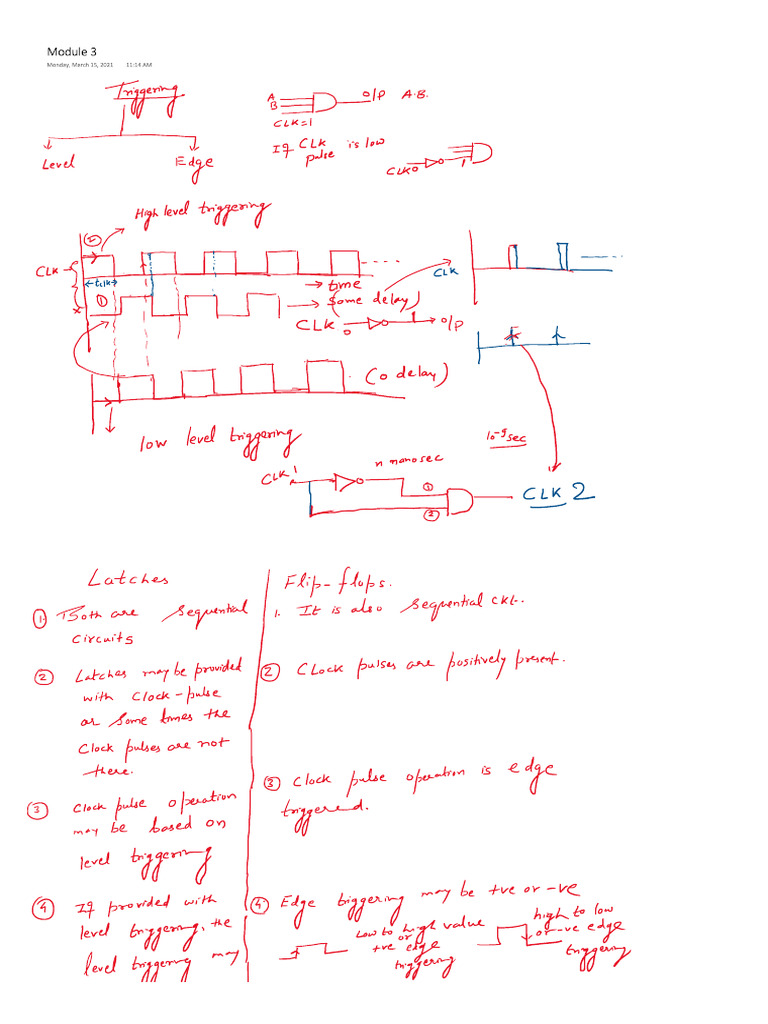 Module 3
Monday, March 15, 2021 11:14 AM
Triggering
Level
Edge
A
B
CLK=1
O/P A.B.
If CLK is low
pulse
CLK 0
1
High level triggering
②
CLK
tclk
①
→ time
→ (Some delay)
CLK
0
1
O/P
CLK
(0 delay)
low level triggering
10⁻⁹ sec
CLK 1
n nanosec
①
②
CLK 2
Latches
① Both are Sequential
circuits
② Latches may be provided
with clock-pulse
or Some times the
Clock pulses are not
there.
③ Clock pulse operation
may be based on
level triggering
④ If provided with
level triggering, the
level triggering may
Flip-flops.
1. It is also Sequential CKt.
② Clock pulses are positively present.
③ Clock pulse operation is edge
triggered.
④ Edge triggering may be +ve or -ve
Low to high value
or
+ve edge
triggering
high to low
or -ve edge
triggering